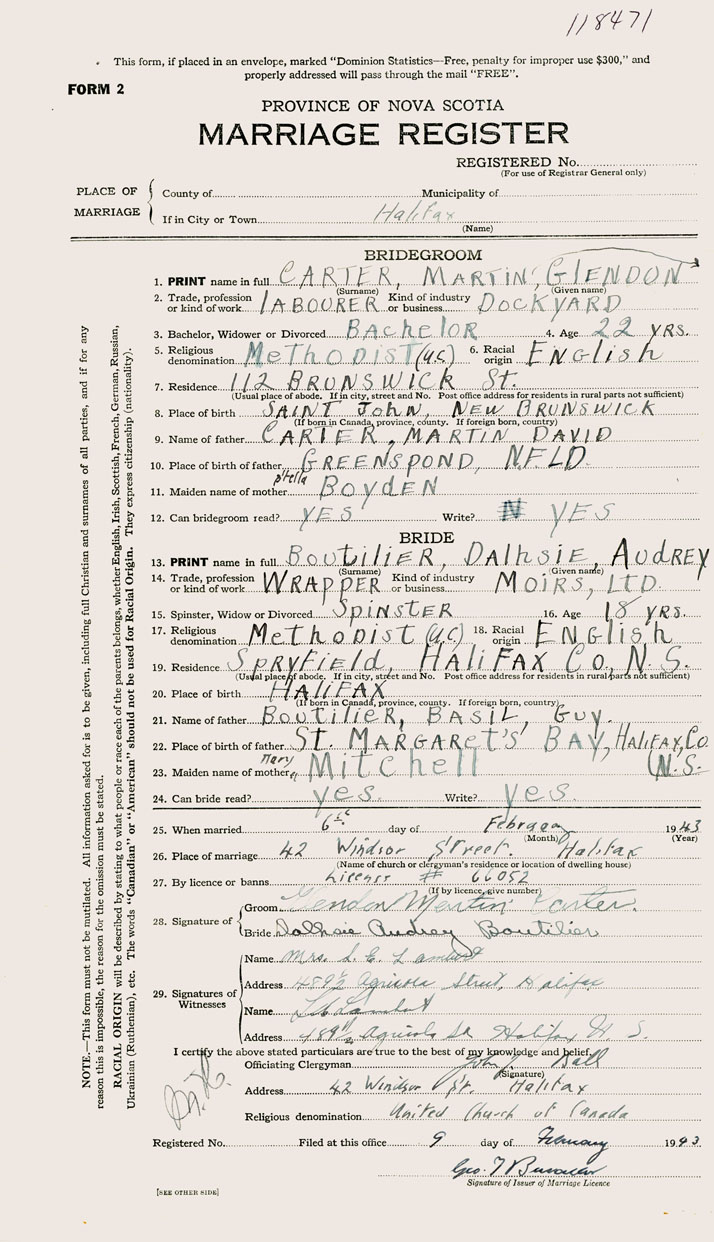 118471
This form, if placed in an envelope, marked "Dominion Statistics—Free, penalty for improper use $300," and
properly addressed will pass through the mail "FREE".
FORM 2
PROVINCE OF NOVA SCOTIA
MARRIAGE REGISTER
REGISTERED No.
(For use of Registrar General only)
PLACE OF MARRIAGE
County of Municipality of
If in City or Town Halifax
(Name)
BRIDEGROOM
1. PRINT name in full CARTER, MARTIN, GlENDON
(Surname) (Given name)
2. Trade, profession or kind of work lABOURER Kind of industry or business DOCKYARD
3. Bachelor, Widower or Divorced BAChElOR 4. Age 22 YRS.
5. Religious denomination MeThoDisT (U.C) 6. Racial origin ENGlish
7. Residence 112 BRUNSWICK ST.
(Usual place of abode. If in city, street and No. Post office address for residents in rural parts not sufficient)
8. Place of birth SAINT John, NEW BRUNSWICK
(If born in Canada, province, county. If foreign born, country)
9. Name of father CARTER, MARTIN DAVID
10. Place of birth of father GREENSPOND, NFLD.
11. Maiden name of mother BOYDEN
12. Can bridegroom read? YES Write? N YES
BRIDE
13. PRINT name in full BouTiliER, DAlhSiE, AUDREY
(Surname) (Given name)
14. Trade, profession or kind of work WRAPPER Kind of industry or business MOIRS, LTD.
15. Spinster, Widow or Divorced SPINSTER 16. Age 18 YRS.
17. Religious denomination MeThoDisT (U.C) 18. Racial origin ENGlish
19. Residence SPRYFiElD, HAliFAX Co., N.S.
(Usual place of abode. If in city, street and No. Post office address for residents in rural parts not sufficient)
20. Place of birth HAliFAX
(If born in Canada, province, county. If foreign born, country)
21. Name of father BouTiliER, BASIL, GUY.
22. Place of birth of father ST. MARGARET'S BAY, HALIFAX, Co.
(N.S.
23. Maiden name of mother Mary Mitchell
24. Can bride read? yes. Write? yes.
25. When married 6th day of February 1943
(Month) (Year)
26. Place of marriage 42 Windsor Street. Halifax
(Name of church or clergyman's residence or location of dwelling house)
27. By licence or banns License # 66052
(If by licence, give number)
28. Signature of
Groom Glendon Martin Carter.
Bride Dalhsie Audrey Boutilier
29. Signatures of Witnesses
Name Mrs. L. E. Lambert
Address 489½ Agricola Street, Halifax
Name Lambert
Address 489½ Agricola St. Halifax N. S.
I certify the above stated particulars are true to the best of my knowledge and belief.
Officiating Clergyman John Ball
(Signature)
Address 42 Windsor St. Halifax
Religious denomination United Church of Canada
Registered No. Filed at this office 9 day of February 1943
Geo. T
Signature of Issuer of Marriage Licence
[SEE OTHER SIDE]
NOTE.—This form must not be mutilated. All information asked for is to be given, including full Christian and surnames of all parties, and if for any
reason this is impossible, the reason for the omission must be stated.
RACIAL ORIGIN will be described by stating to what people or race each of the parents belongs, whether English, Irish, Scottish, French, German, Russian,
Ukrainian (Ruthenian), etc. The words "Canadian" or "American" should not be used for Racial Origin. They express citizenship (nationality).